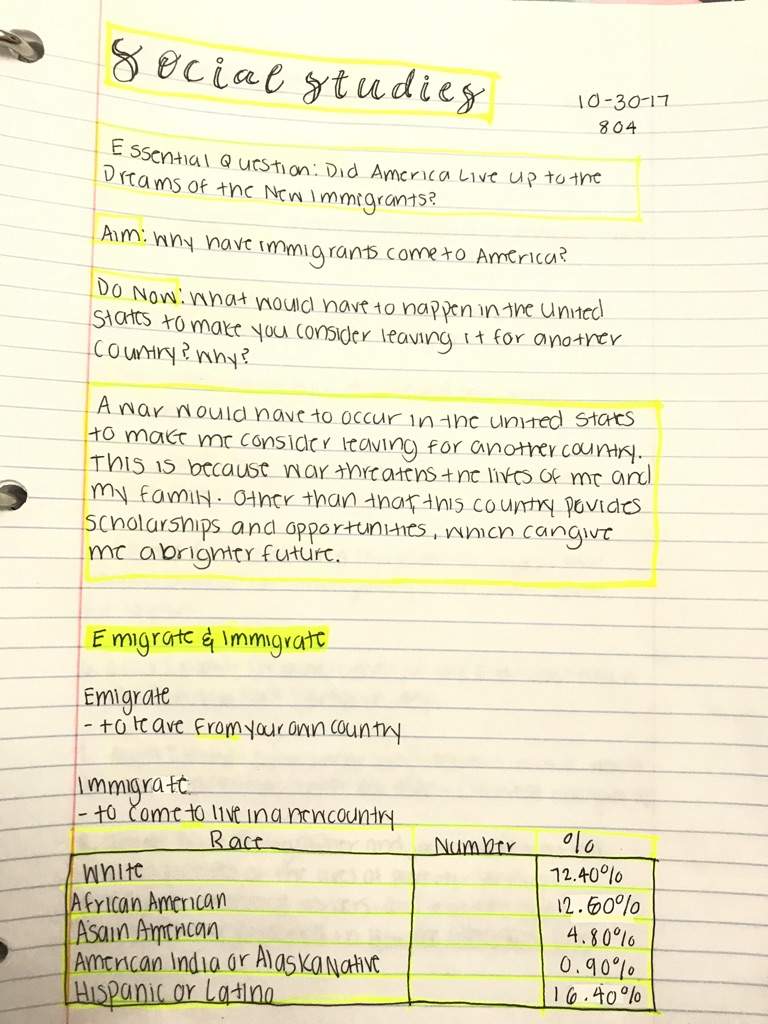 Social Studies
10-30-17
804
Essential Question: Did America Live up to the
Dreams of the New Immigrants?
Aim: Why have immigrants come to America?
Do Now: What would have to happen in the United
States to make you consider leaving it for another
country? Why?
A war would have to occur in the united states
to make me consider leaving for another country.
This is because war threatens the lives of me and
my family. Other than that, this country povides
scholarships and opportunities, which can give
me a brighter future.
Emigrate & Immigrate
Emigrate
- to leave from your own country
Immigrate
- to come to live in a new country
Race Number %
White 72.40%
African American 12.60%
Asain American 4.80%
American India or Alaska Native 0.90%
Hispanic or Latino 16.40%